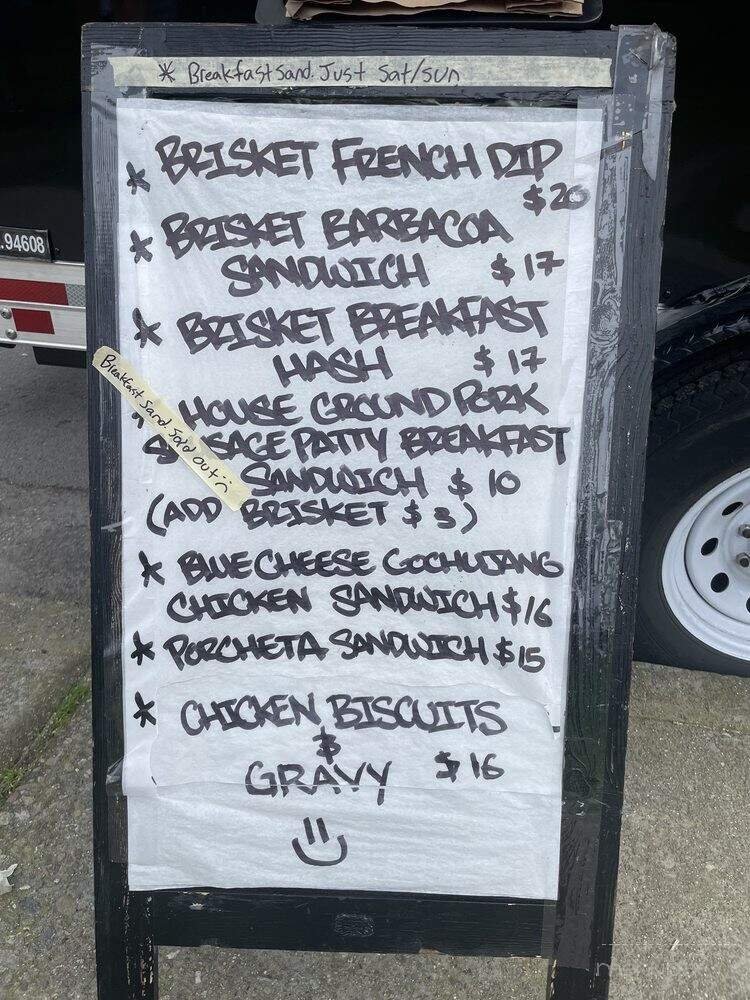 * Breakfast Sand. Just Sat/Sun
* BRISKET FRENCH DIP
$20
* BRISKET BARBACOA
SANDWICH $17
* BRISKET BREAKFAST
HASH $17
HOUSE GROUND PORK
SAGE PATTY BREAKFAST
SANDWICH $10
(ADD BRISKET $3)
Breakfast Sand. Sold out :(
* BLUE CHEESE GOCHUJANG
CHICKEN SANDWICH $16
* PORCHETA SANDWICH $15
* CHICKEN BISCUITS
&
GRAVY $16
.94608